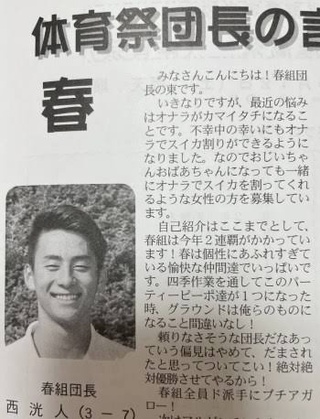 体育祭団長の言
春
みなさんこんにちは！春組団
長の東です。
いきなりですが、最近の悩み
はオナラがカマイタチになるこ
とです。不幸中の幸いにもオナ
ラでスイカ割りができるように
なりました。なのでおじいちゃ
んおばあちゃんになっても一緒
にオナラでスイカを割ってくれ
るような女性の方を募集してい
ます。
自己紹介はここまでとして、
春組は今年２連覇がかかってい
ます！春は個性にあふれすぎて
いる愉快な仲間達でいっぱいで
す。四季作業を通してこのパー
ティーピーポ達が１つになった
時、グラウンドは俺らのものに
なること間違いなし！
頼りなさそうな団長だなあっ
ていう偏見はやめて、だまされ
たと思ってついてこい！絶対絶
対優勝させてやるから！
春組全員ド派手にブチアガ
ロー！
春組団長
西 洸 人（３－７）